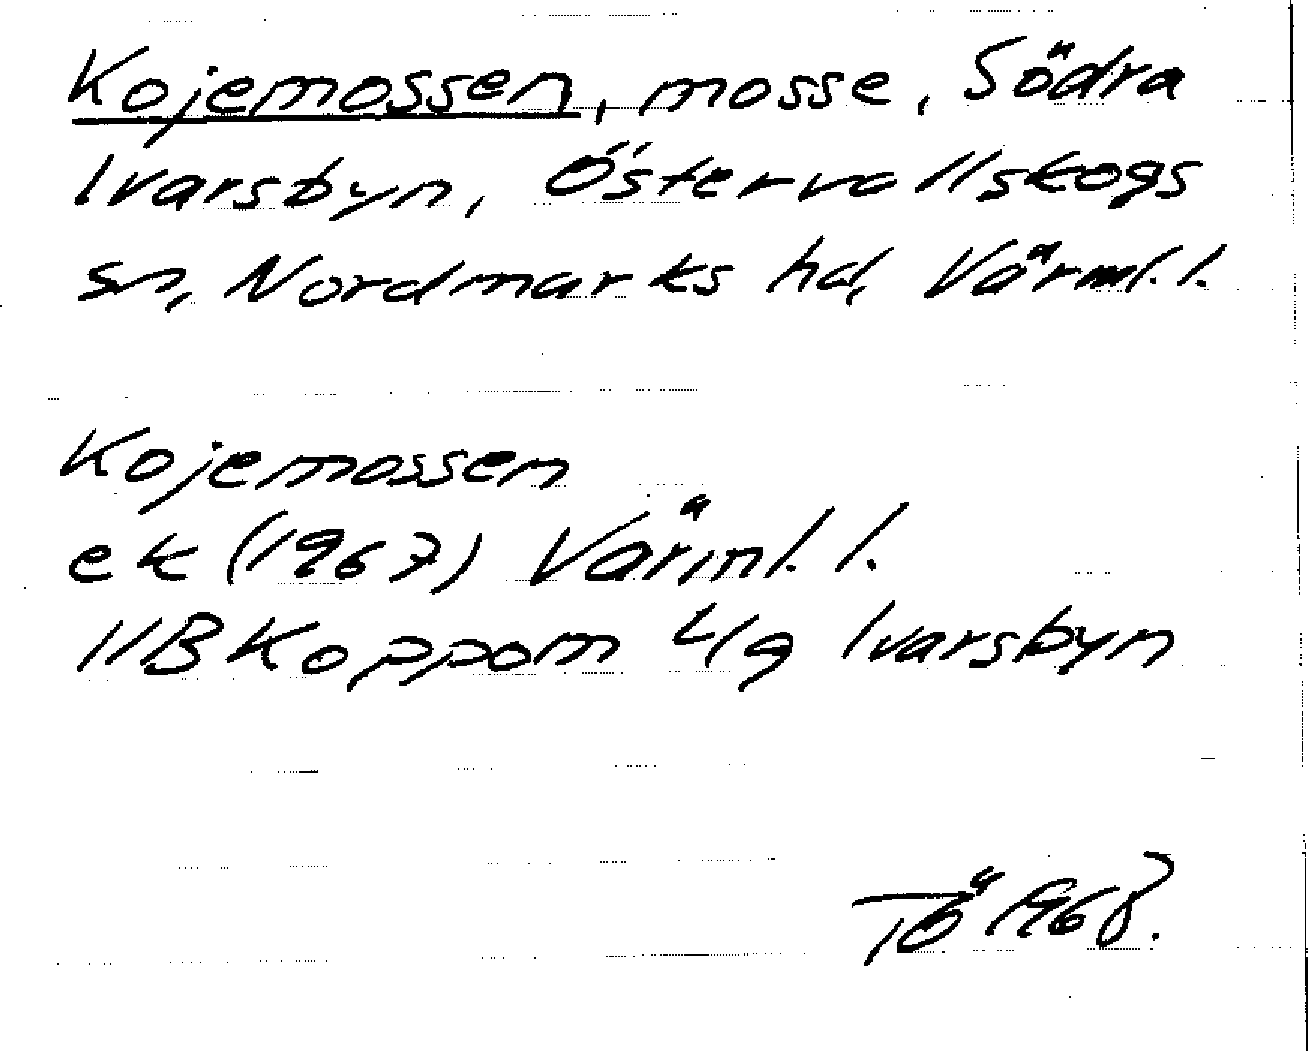 Kojemossen, mosse, Södra
Ivarsbyn, Östervallskogs
sn, Nordmarks hd, Värml.l.
Kojemossen
ek (1967) Värml. l.
11B Koppom 4g Ivarsbyn
TÖ 1968.